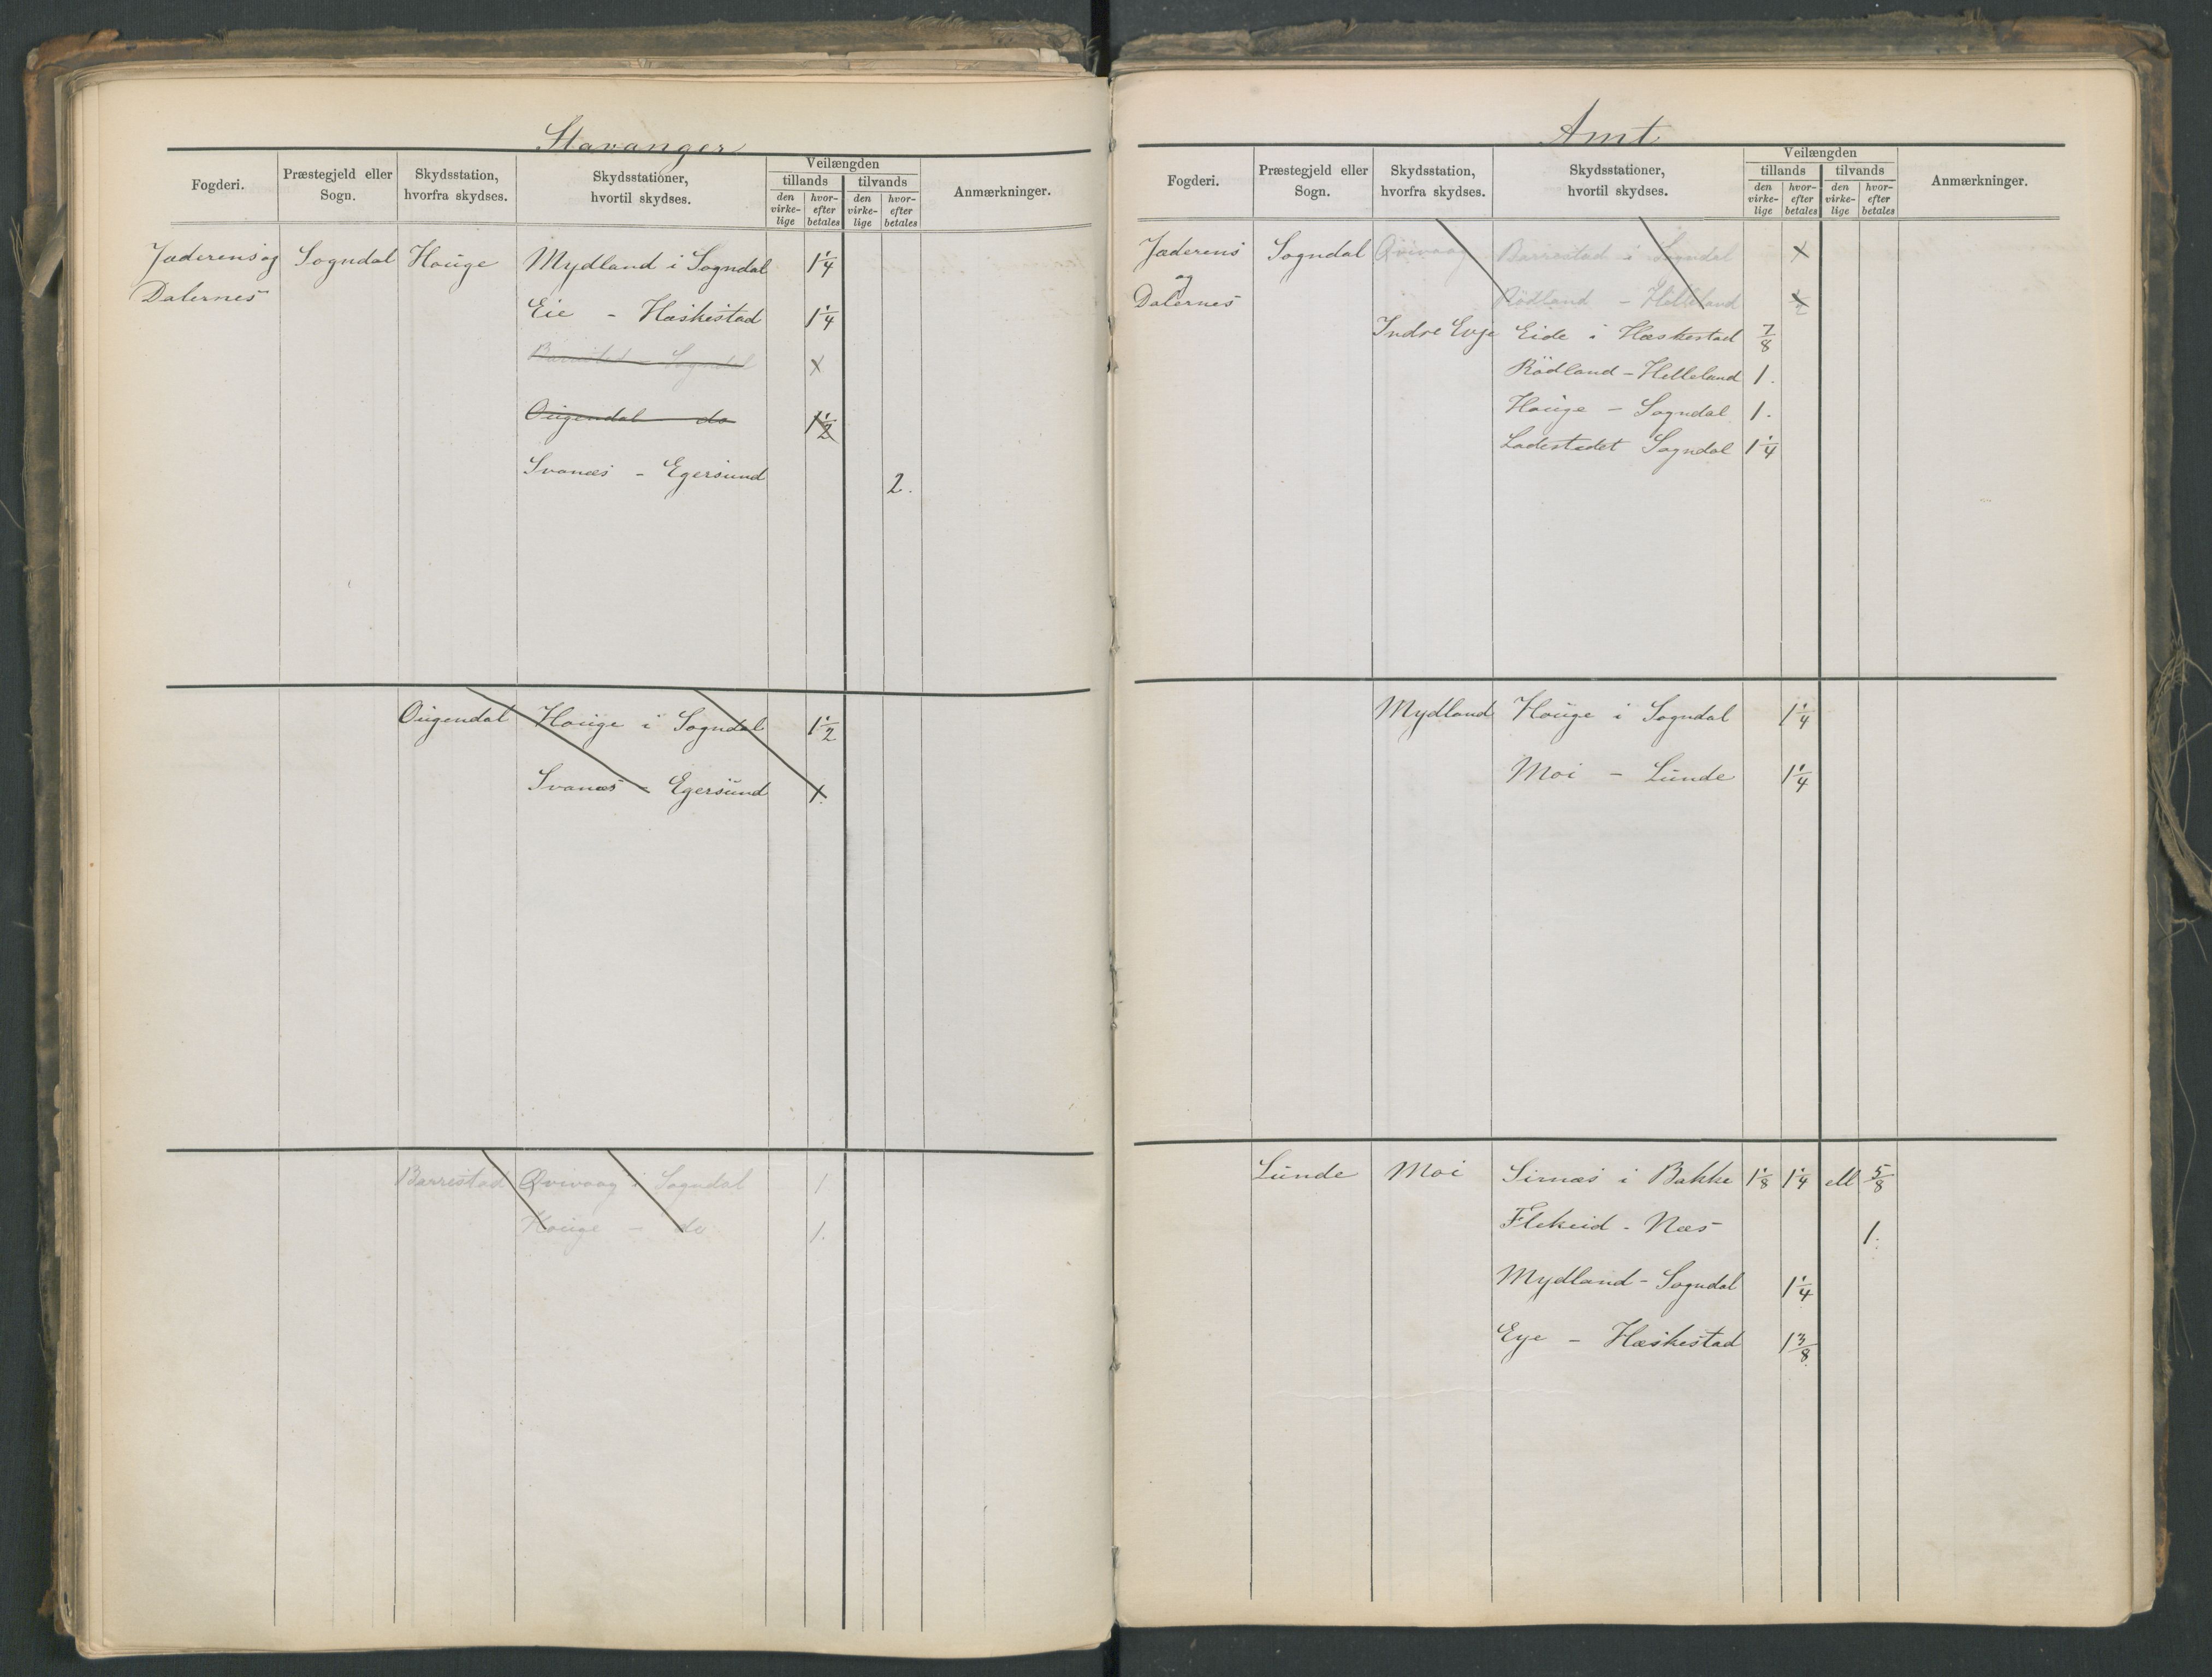 Stavanger
Fogderi. Præstegjeld eller Sogn. Skydsstation, hvorfra skydses. Skydsstationer, hvortil skydses. Veilængden tillands tilvands den virke-lige hvor-efter betales den virke-lige hvor-efter betales Anmærkninger.
Jæderens og Sogndal Houge Mydland i Sogndal 1 1/4
Dalernes
Eie - Hæskestad 1 1/4
Barrestad - Sogndal 1
Ougendal do 1 1/2
Svanæs - Egersund 2.
Ougendal Houge i Sogndal 1 1/2
Svanæs - Egersund 1.
Barrestad Qvivaag i Sogndal 1
Houge - do 1.
Amt
Fogderi. Præstegjeld eller Sogn. Skydsstation, hvorfra skydses. Skydsstationer, hvortil skydses. Veilængden tillands tilvands den virke-lige hvor-efter betales den virke-lige hvor-efter betales Anmærkninger.
Jæderens Sogndal Qvivaag Barrestad i Sogndal 1
og
Dalernes Rödland - Helleland 1/2
Indre Evje Eide i Hæskestad 7/8
Rödland - Helleland 1.
Houge - Sogndal 1.
Ladestedet Sogndal 1 1/4
Mydland Houge i Sogndal 1 1/4
Moi - Lunde 1 1/4
Lunde Moi Sirnæs i Bakke 1 1/8 1 1/4 ell 5/8
Flekeid - Næs 1.
Mydland - Sogndal 1 1/4
Eye - Hæskestad 1 3/8